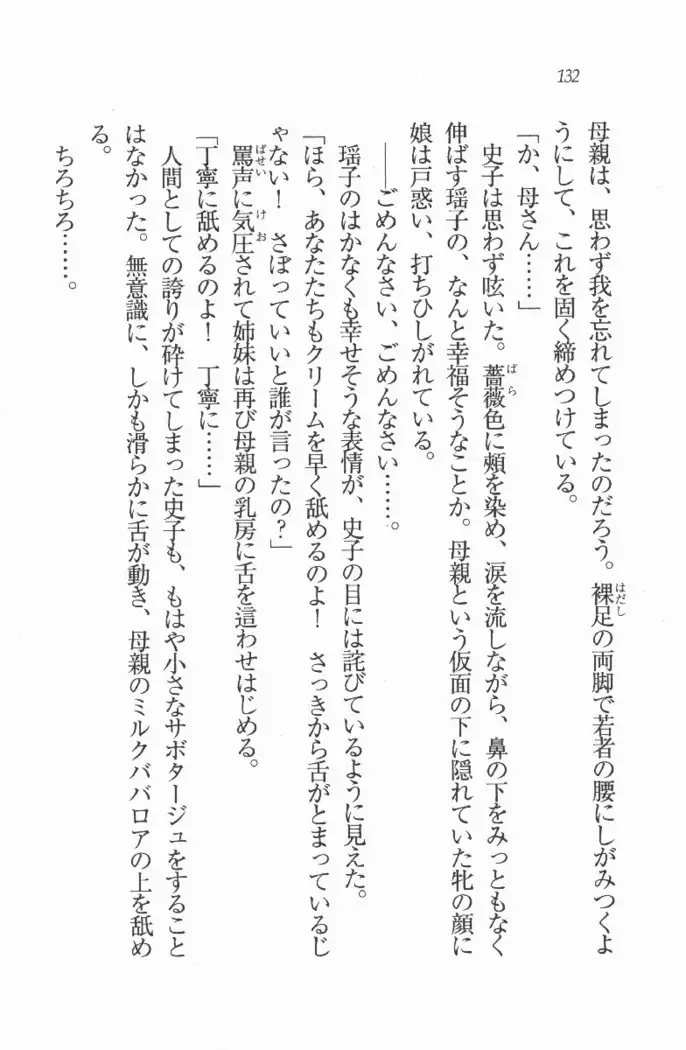 132
母親は、思わず我を忘れてしまったのだろう。裸足の両脚で若者の腰にしがみつくよ
うにして、これを固く締めつけている。
「か、母さん……」
史子は思わず呟いた。薔薇色に頬を染め、涙を流しながら、鼻の下をみっともなく
伸ばす瑶子の、なんと幸福そうなことか。母親という仮面の下に隠れていた牝の顔に
娘は戸惑い、打ちひしがれている。
――ごめんなさい、ごめんなさい……。
瑶子のはかなくも幸せそうな表情が、史子の目には詫びているように見えた。
「ほら、あなたたちもクリームを早く舐めるのよ！　さっきから舌がとまっているじ
ゃない！　さぼっていいと誰が言ったの？」
罵声に気圧されて姉妹は再び母親の乳房に舌を這わせはじめる。
「丁寧に舐めるのよ！　丁寧に……」
人間としての誇りが砕けてしまった史子も、もはや小さなサボタージュをすること
はなかった。無意識に、しかも滑らかに舌が動き、母親のミルクババロアの上を舐め
る。
ちろちろ……。